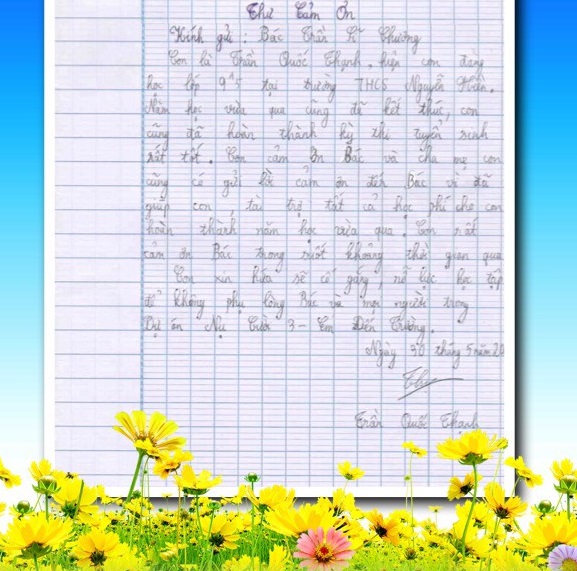 Thư Cảm Ơn
Kính gửi : Bác Trần Sĩ Chương
Con là Trần Quốc Thạnh, hiện con đang
học lớp 9^5 tại trường THCS Nguyễn Hiền.
Năm học vừa qua cũng đã kết thúc, con
cũng đã hoàn thành kỳ thi tuyển sinh
rất tốt. Con cảm ơn Bác và cha mẹ con
cũng có gửi lời cảm ơn đến Bác vì đã
giúp con, tài trợ tất cả học phí cho con
hoàn thành năm học vừa qua. Con rất
cảm ơn Bác trong suốt khoảng thời gian qua
Con xin hứa sẽ cố gắng, nỗ lực học tập
để không phụ lòng Bác và mọi người trong
Dự án Nụ Cười 3 - Em Đến Trường.
Ngày 30 tháng 5 năm 20
Trần Quốc Thạnh